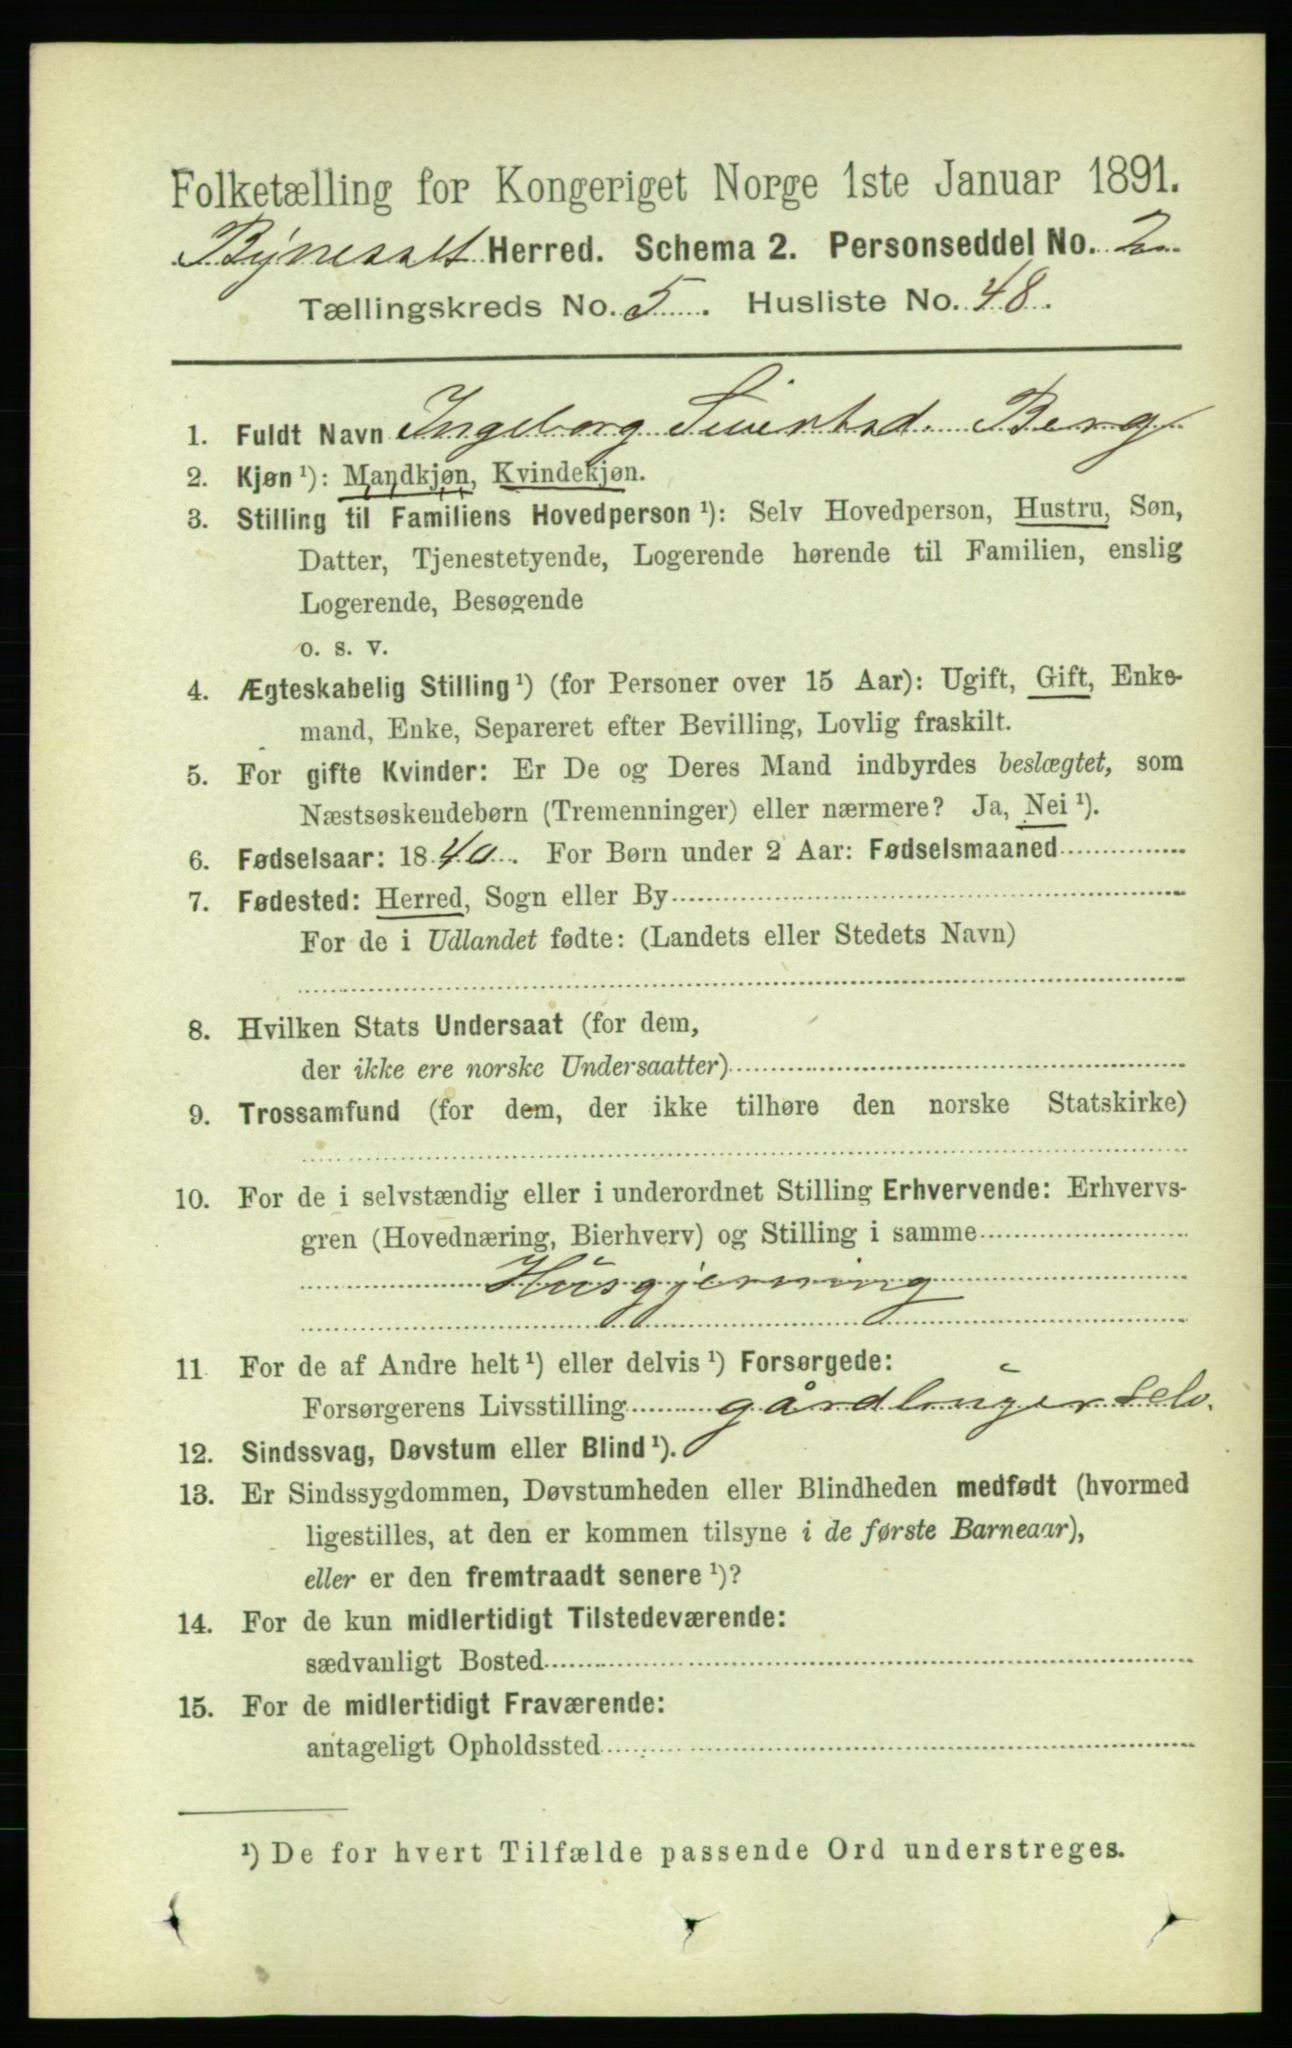 Folketælling for Kongeriget Norge 1ste Januar 1891.
Bynesset Herred. Schema 2. Personseddel No. 2
Tællingskreds No. 5. Husliste No. 48.
1. Fuldt Navn Ingeborg Sivertsd. Berg
2. Kjøn ¹): Mandkjøn, Kvindekjøn.
3. Stilling til Familiens Hovedperson ¹): Selv Hovedperson, Hustru, Søn,
Datter, Tjenestetyende, Logerende hørende til Familien, enslig
Logerende, Besøgende
o. s. v.
4. Ægteskabelig Stilling ¹) (for Personer over 15 Aar): Ugift, Gift, Enke-
mand, Enke, Separeret efter Bevilling, Lovlig fraskilt.
5. For gifte Kvinder: Er De og Deres Mand indbyrdes beslægtet, som
Næstsøskendebørn (Tremenninger) eller nærmere? Ja, Nei ¹).
6. Fødselsaar: 1840. For Børn under 2 Aar: Fødselsmaaned
7. Fødested: Herred, Sogn eller By
For de i Udlandet fødte: (Landets eller Stedets Navn)
8. Hvilken Stats Undersaat (for dem,
der ikke ere norske Undersaatter)
9. Trossamfund (for dem, der ikke tilhøre den norske Statskirke)
10. For de i selvstændig eller i underordnet Stilling Erhvervende: Erhvervs-
gren (Hovednæring, Bierhverv) og Stilling i samme
Husgjerning
11 For de af Andre helt ¹) eller delvis ¹) Forsørgede:
Forsørgerens Livsstilling gårdbruger Selv.
12. Sindssvag, Døvstum eller Blind ¹).
13. Er Sindssygdommen, Døvstumheden eller Blindheden medfødt (hvormed
ligestilles, at den er kommen tilsyne i de første Barneaar),
eller er den fremtraadt senere ¹)?
14. For de kun midlertidigt Tilstedeværende:
sædvanligt Bosted
15. For de midlertidigt Fraværende:
antageligt Opholdssted
¹) De for hvert Tilfælde passende Ord understreges.